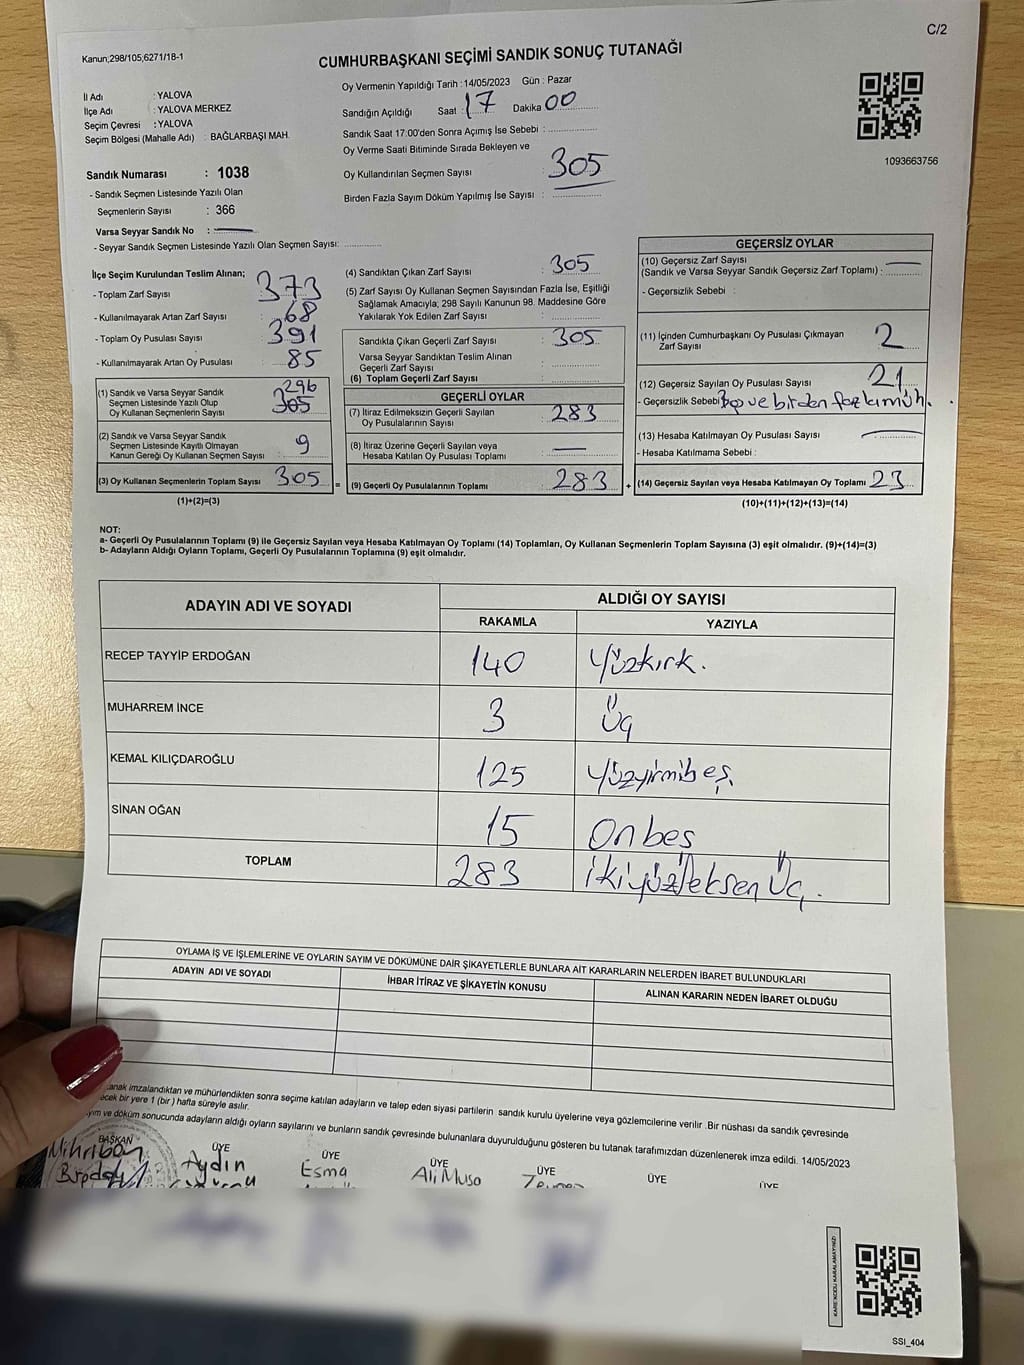 C/2
Kanun;298/105;6271/18-1
CUMHURBAŞKANI SEÇİMİ SANDIK SONUÇ TUTANAĞI
İl Adı : YALOVA
İlçe Adı : YALOVA MERKEZ
Seçim Çevresi : YALOVA
Seçim Bölgesi (Mahalle Adı) : BAĞLARBAŞI MAH.
Sandık Numarası : 1038
- Sandık Seçmen Listesinde Yazılı Olan
Seçmenlerin Sayısı : 366
Varsa Seyyar Sandık No :
- Seyyar Sandık Seçmen Listesinde Yazılı Olan Seçmen Sayısı:
Oy Vermenin Yapıldığı Tarih : 14/05/2023 Gün : Pazar
Sandığın Açıldığı Saat : 17 Dakika 00
Sandık Saat 17:00'den Sonra Açımış İse Sebebi :
Oy Verme Saati Bitiminde Sırada Bekleyen ve
Oy Kullandırılan Seçmen Sayısı : 305
Birden Fazla Sayım Döküm Yapılmış İse Sayısı :
1093663756
İlçe Seçim Kurulundan Teslim Alınan;
- Toplam Zarf Sayısı : 373
- Kullanılmayarak Artan Zarf Sayısı : 68
- Toplam Oy Pusulası Sayısı : 391
- Kullanılmayarak Artan Oy Pusulası : 85
(1) Sandık ve Varsa Seyyar Sandık
Seçmen Listesinde Yazılı Olup
Oy Kullanan Seçmenlerin Sayısı
296
305
(2) Sandık ve Varsa Seyyar Sandık
Seçmen Listesinde Kayıtlı Olmayan
Kanun Gereği Oy Kullanan Seçmen Sayısı : 9
(3) Oy Kullanan Seçmenlerin Toplam Sayısı : 305 =
(1)+(2)=(3)
(4) Sandıktan Çıkan Zarf Sayısı : 305
(5) Zarf Sayısı Oy Kullanan Seçmen Sayısından Fazla İse, Eşitliği
Sağlamak Amacıyla; 298 Sayılı Kanunun 98. Maddesine Göre
Yakılarak Yok Edilen Zarf Sayısı :
Sandıkta Çıkan Geçerli Zarf Sayısı : 305
Varsa Seyyar Sandıktan Teslim Alınan
Geçerli Zarf Sayısı :
(6) Toplam Geçerli Zarf Sayısı :
GEÇERLİ OYLAR
(7) İtiraz Edilmeksizin Geçerli Sayılan
Oy Pusulalarının Sayısı : 283
(8) İtiraz Üzerine Geçerli Sayılan veya
Hesaba Katılan Oy Pusulası Toplamı :
(9) Geçerli Oy Pusulalarının Toplamı : 283 +
GEÇERSİZ OYLAR
(10) Geçersiz Zarf Sayısı
(Sandık ve Varsa Seyyar Sandık Geçersiz Zarf Toplamı) :
- Geçersizlik Sebebi :
(11) İçinden Cumhurbaşkanı Oy Pusulası Çıkmayan
Zarf Sayısı : 2
(12) Geçersiz Sayılan Oy Pusulası Sayısı : 21
- Geçersizlik Sebebi Boş ve birden fazla müh.
(13) Hesaba Katılmayan Oy Pusulası Sayısı :
- Hesaba Katılmama Sebebi :
(14) Geçersiz Sayılan veya Hesaba Katılmayan Oy Toplamı 23
(10)+(11)+(12)+(13)=(14)
NOT:
a- Geçerli Oy Pusulalarının Toplamı (9) ile Geçersiz Sayılan veya Hesaba Katılmayan Oy Toplamı (14) Toplamları, Oy Kullanan Seçmenlerin Toplam Sayısına (3) eşit olmalıdır. (9)+(14)=(3)
b- Adayların Aldığı Oyların Toplamı, Geçerli Oy Pusulalarının Toplamına (9) eşit olmalıdır.
ADAYIN ADI VE SOYADI ALDIĞI OY SAYISI
RAKAMLA YAZIYLA
RECEP TAYYİP ERDOĞAN 140 Yüzkırk.
MUHARREM İNCE 3 Üç
KEMAL KILIÇDAROĞLU 125 Yüzyirmibeş
SİNAN OĞAN 15 Onbeş
TOPLAM 283 ikiyüzseksen Üç.
OYLAMA İŞ VE İŞLEMLERİNE VE OYLARIN SAYIM VE DÖKÜMÜNE DAİR ŞİKAYETLERLE BUNLARA AİT KARARLARIN NELERDEN İBARET BULUNDUKLARI
ADAYIN ADI VE SOYADI İHBAR İTİRAZ VE ŞİKAYETİN KONUSU ALINAN KARARIN NEDEN İBARET OLDUĞU
anak imzalandıktan ve mühürlendikten sonra seçime katılan adayların ve talep eden siyasi partilerin sandık kurulu üyelerine veya gözlemcilerine verilir .Bir nüshası da sandık çevresinde
ecek bir yere 1 (bir ) hafta süreyle asılır.
yım ve döküm sonucunda adayların aldığı oyların sayılarını ve bunların sandık çevresinde bulunanlara duyurulduğunu gösteren bu tutanak tarafımızdan düzenlenerek imza edildi. 14/05/2023
BAŞKAN ÜYE ÜYE ÜYE ÜYE ÜYE ÜYE
Mihriban Aydın Esma Ali Musa
KARE KODU KARALAMAYINIZ!
SSI_404